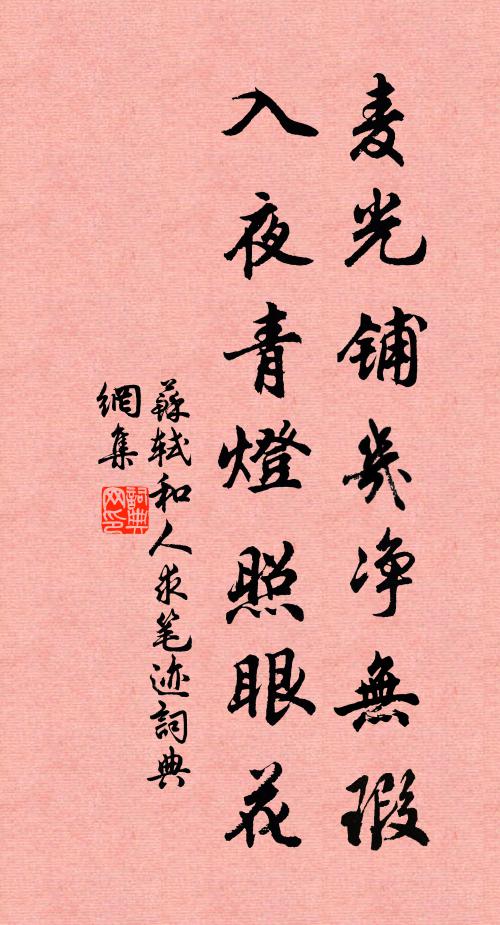 麦光铺几净無瑕
入夜青燈照眼花
蘇軾和人求笔迹詞典
網集
詞典
网印